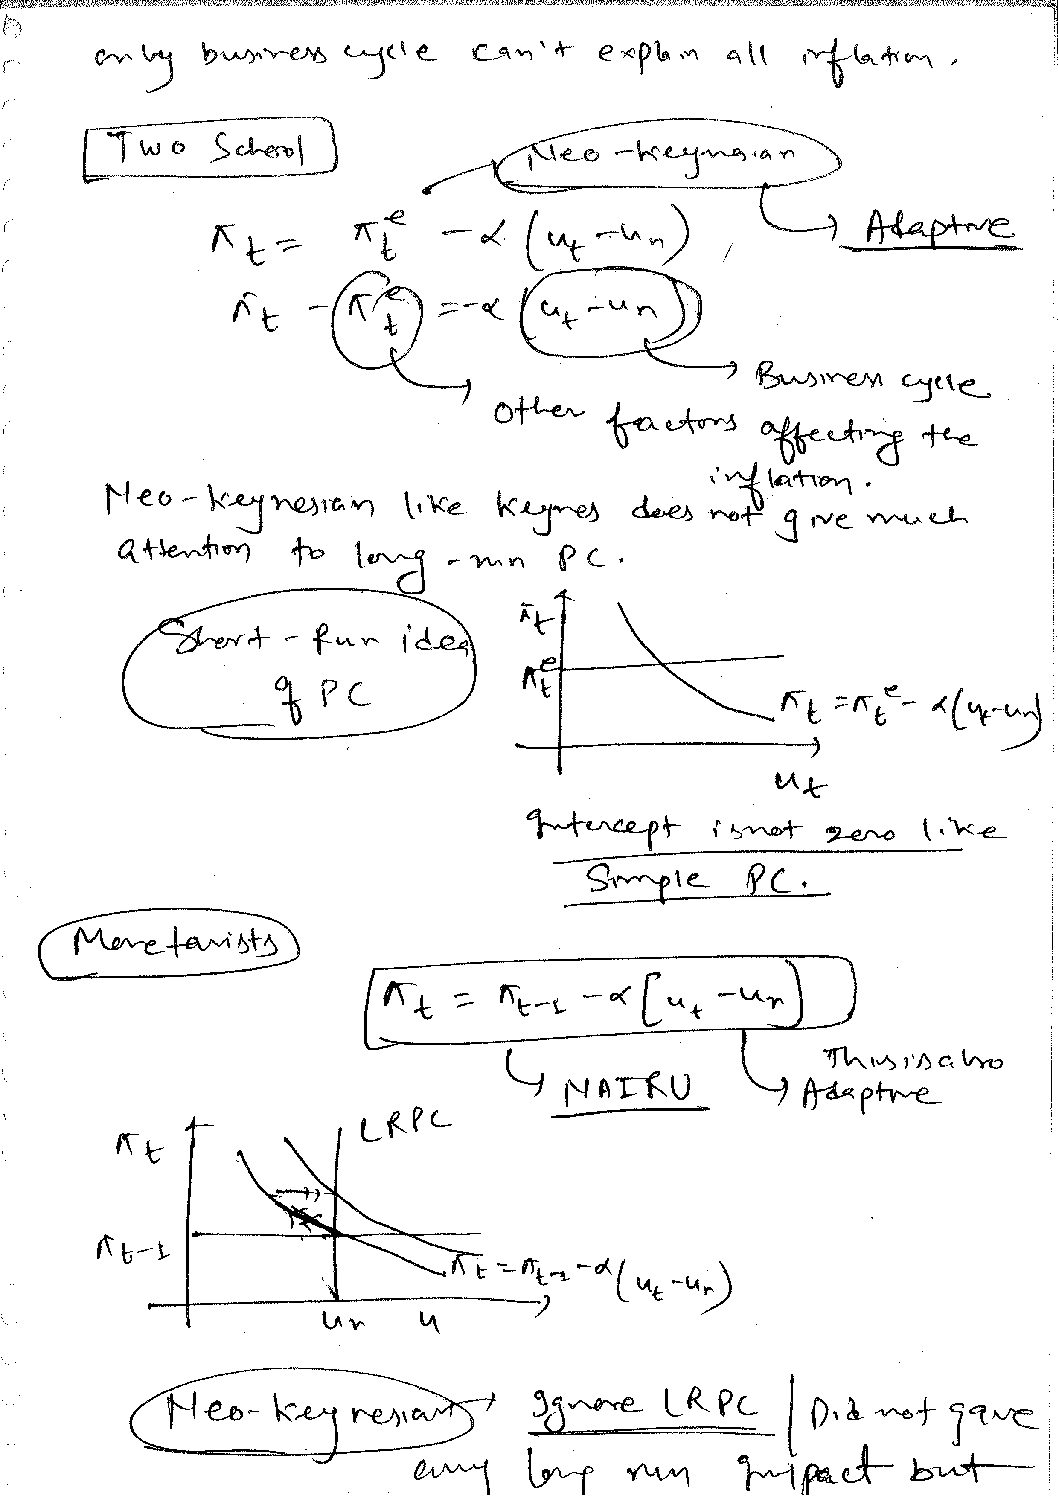 only business cycle can't explain all inflation.
Two School
Neo-Keynesian
Adaptive
π_t = π_t^e - α (u_t - u_n)
π_t - π_t^e = -α (u_t - u_n)
Business cycle
Other factors affecting the
inflation.
Neo-Keynesian like Keynes does not give much
attention to long-run PC.
Short-Run idea
of PC
π_t
π_t^e
π_t = π_t^e - α(u_t-u_n)
u_t
Intercept is not zero like
Simple PC.
Monetarists
π_t = π_{t-1} - α [u_t - u_n]
This is also
NAIRU
Adaptive
LRPC
π_t
π_{t-1}
π_t = π_{t-1} - α (u_t - u_n)
u_n u
Neo-Keynesian → Ignore LRPC | Did not gave
any long run impact but